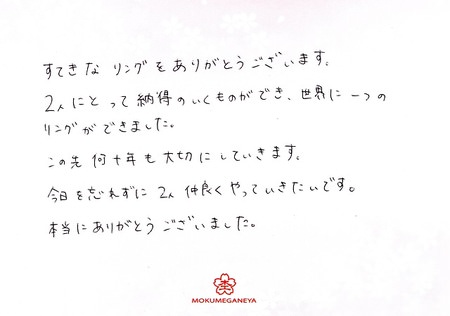 すてきな リングをありがとうございます。
2人にとって納得のいくものができ、世界に一つの
リングができました。
この先 何十年も大切にしていきます。
今日を忘れずに 2人 仲良くやっていきたいです。
本当にありがとうございました。
MOKUMEGANEYA